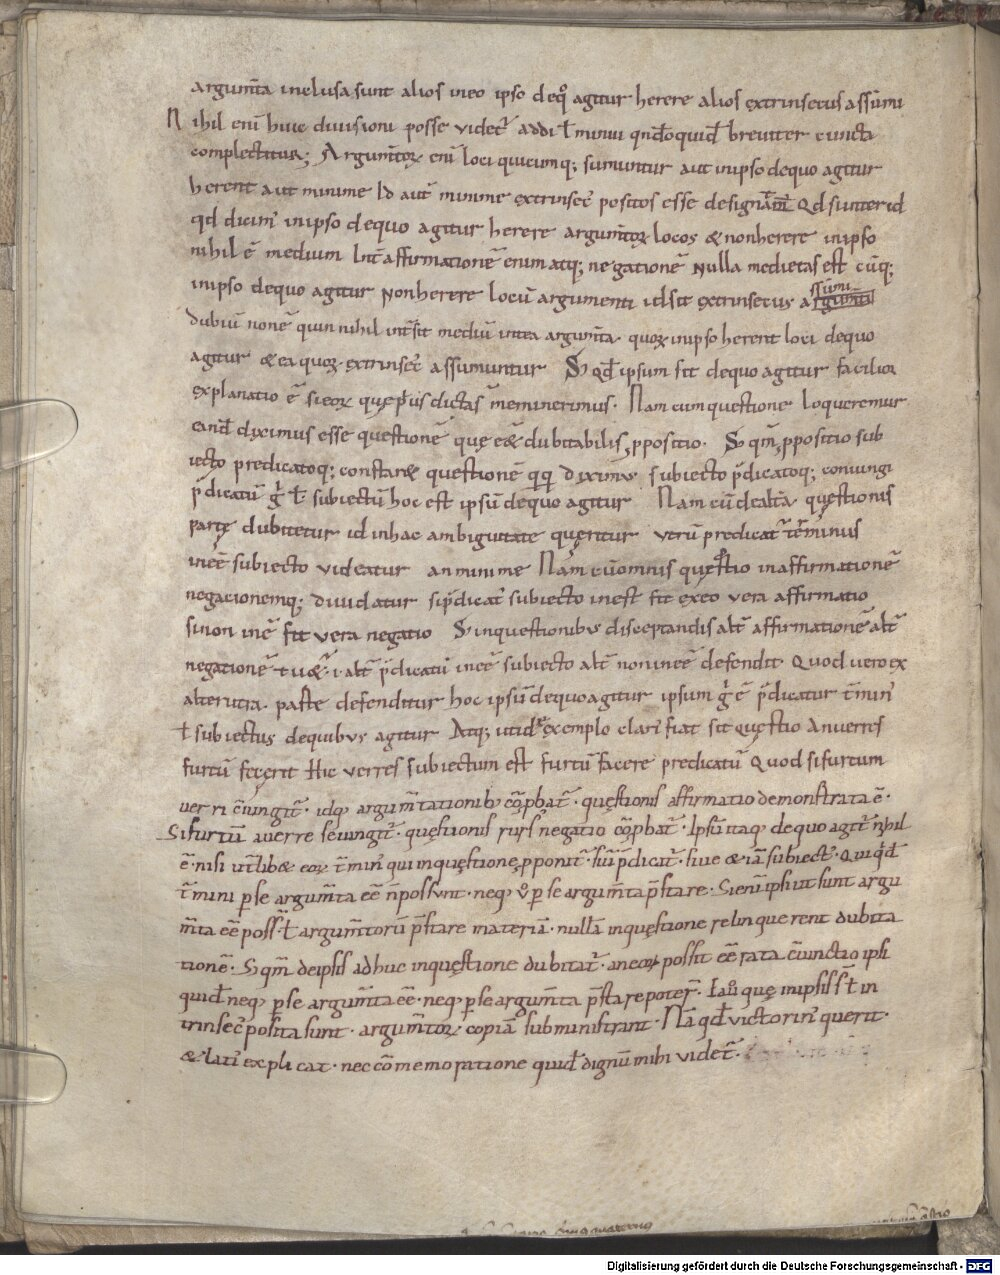 argum̄ta inclusa sunt alios in eo ipso de q̊ agitur herere alios extrinsecus assumi
N ihil enī huic diuisioni posse videt᷑ addi ł minui qn̄do quid̄ breuiter cuncta
complectitur; Argum̄toꝝ enī loci quicumq; sumuntur aut in ipso de quo agitur
herent aut minime Id aut̄ minime extrinsec᾽ positos esse designam᷑ Qd si inter id
qd dicim᷑ in ipso de quo agitur herere argum̄toꝝ locos & non herere in ipso
nihil ē medium Int̄ affirmationē enim atq; negationē Nulla medietas est cūq;
in ipso de quo agitur Non herere locū argumenti id sit extrinsecus assumi
dubiū non ē quin nihil int̄sit mediū inter ea argum̄ta quoꝝ in ipso herent loci de quo
agitur & ea quoꝝ extrinsec᾽ assumuntur S; qd̄ ipsum sit de quo agitur facilior
explanatio ē si eoꝝ quę p̄us dicta s̄ meminerimus. Nam cum questione loqueremur
eand̄ diximus esse questionē quę eēt dubitabilis ꝓpositio. S; qm̄ ꝓpositio sub
iecto predicatoq; constaret questionē qq; diximus subiecto p̄dicatoq; coniungi
p̄dicatū g̊ ł subiectū hoc est ipsū de quo agitur Nam cū de alt̄a quęstionis
parte dubitetur id in hac ambiguitate quęritur utrū predicat᷑ t̄minus
inēē subiecto videatur an minime Nam cū omnis quęstio in affirmationē
negacionemq; diuidatur si p̄dicat᷑ subiecto inest fit ex eo vera affirmatio
si non inē fit vera negatio S; in questionibus disceptandis alt̄ affirmationē alt̄
negationē tuet᷑ .i. alt̄ p̄dicatū inēē subiecto alt̄ non inēē defendit Quod uero ex
alterutra parte defenditur hoc ipsū de quo agitur ipsum g̊ ē p̄dicatur t̄min᷑
ł subiectus de quibus agitur Atq; ut id exemplo clari᷑ fiat sit quęstio An uerres
furtū fecerit Hic verres subiectum est furtū facere predicatū Quod si furtum
uerri c̄iungit᷑. idq; argum̄tationib; c̄ꝓbat᷑. quęstionis affirmatio demonstrata ē.
Si furtū a uerre seiungit᷑. quęstionis rurs᷑ negatio c̄ꝓbat᷑. Ipsū itaq; de quo agit᷑ n̄hil
ē. nisi ut̄libet eoꝝ t̄min᷑ qui in quęstione ꝓponit᷑. siue p̄dicat᷑. siue etiā subiect᷑. Qui qd̄
t̄mini ꝑ se argum̄ta ēē n̄ possunt. neq; ů ꝑ se argum̄ta p̄stare. Si enī ipsi ut sunt argu
m̄ta ēē poss̄t ł argum̄torū p̄stare materiā. nullā in quęstione relinquerent dubita
tionē. S; qm̄ de ipsis adhuc in quęstione dubitat᷑. an eoꝝ possit ēē rata c̄iunctio ipsi
quid̄ neq; ꝑ se argum̄ta ēē. neq; ꝑ se argum̄ta p̄stare poter̄. Ea ů quę in ipsis s̄ ł in
trinsec᾽ posita sunt. argum̄toꝝ copiā subministrant. Nā qd̄ victorin᷑ querit.
& lati᷑ explicat. nec c̄memoratione quid̄ dignū mihi videt᷑.
Digitalisierung gefördert durch die Deutsche Forschungsgemeinschaft - DFG